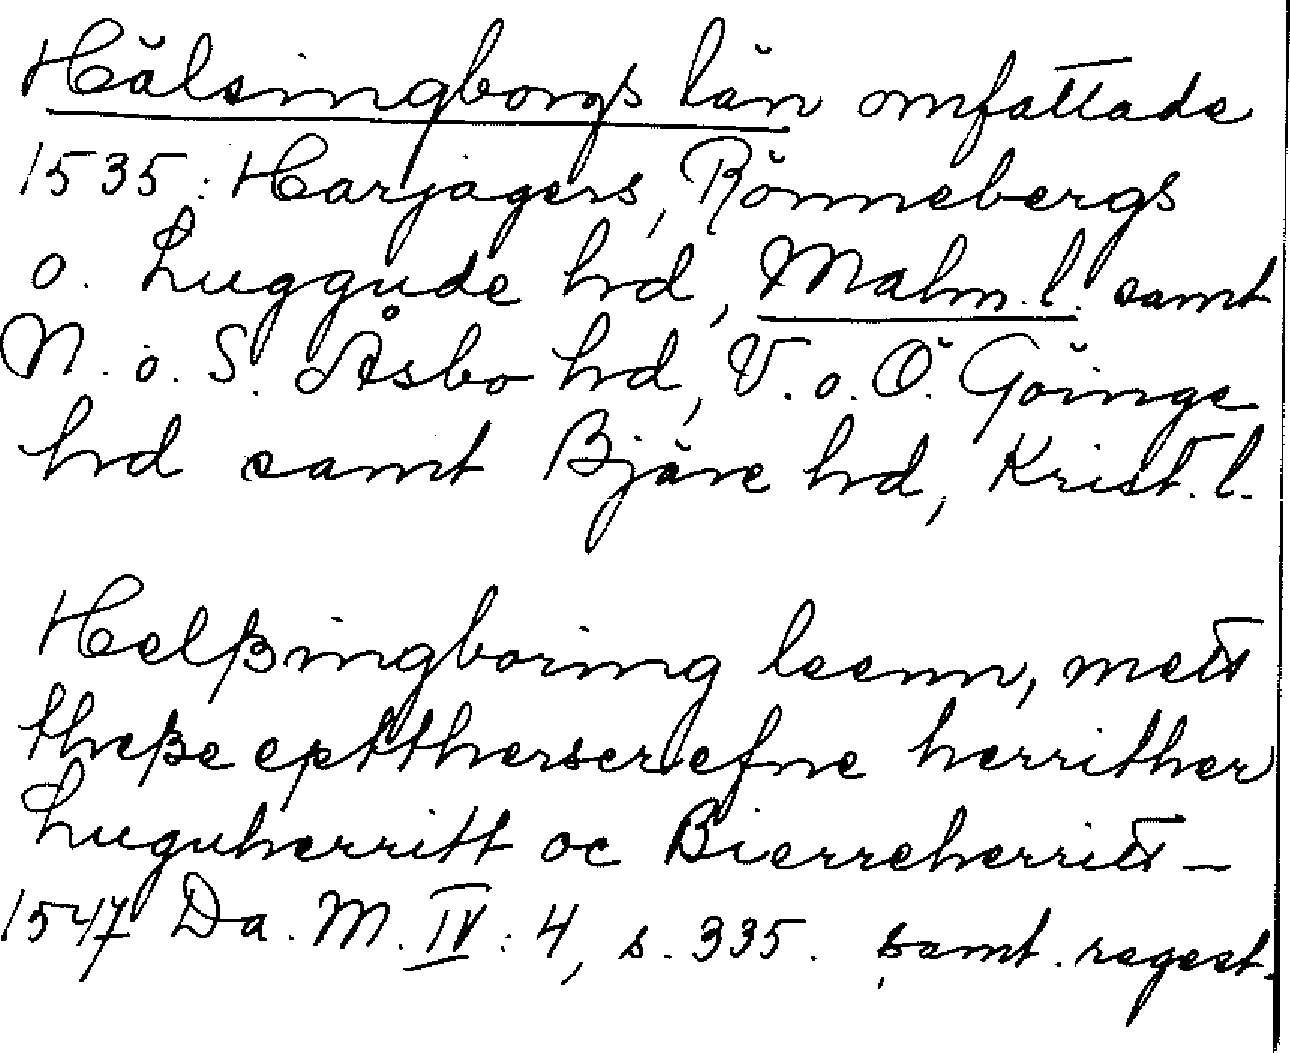 Hälsingborgs län omfattade
1535: Harjagers, Rönnebergs
o. Luggude hrd, Malm. l. samt
N. o. S. Åsbo hrd, V. o. Ö. Göinge
hrd samt Bjäre hrd, Krist. l.
Helßingboring leenn, mett
theße epttherscrefne herrither
Luguherritt oc Bierreherritt –
1547 Da. M. IV: 4, s. 335. samt. regest.